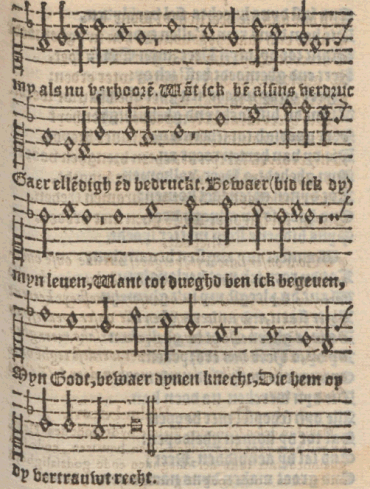 my als nu verhoorē. Wāt ick bē alsins verdruc
Gaer ellēdigh ēd bedruckt. Bewaer (bid ick dy)
myn leuen, Want tot dueghd ben ick begeuen,
Myn Godt, bewaer dynen knecht, Die hem op
dy vertrauwt recht.